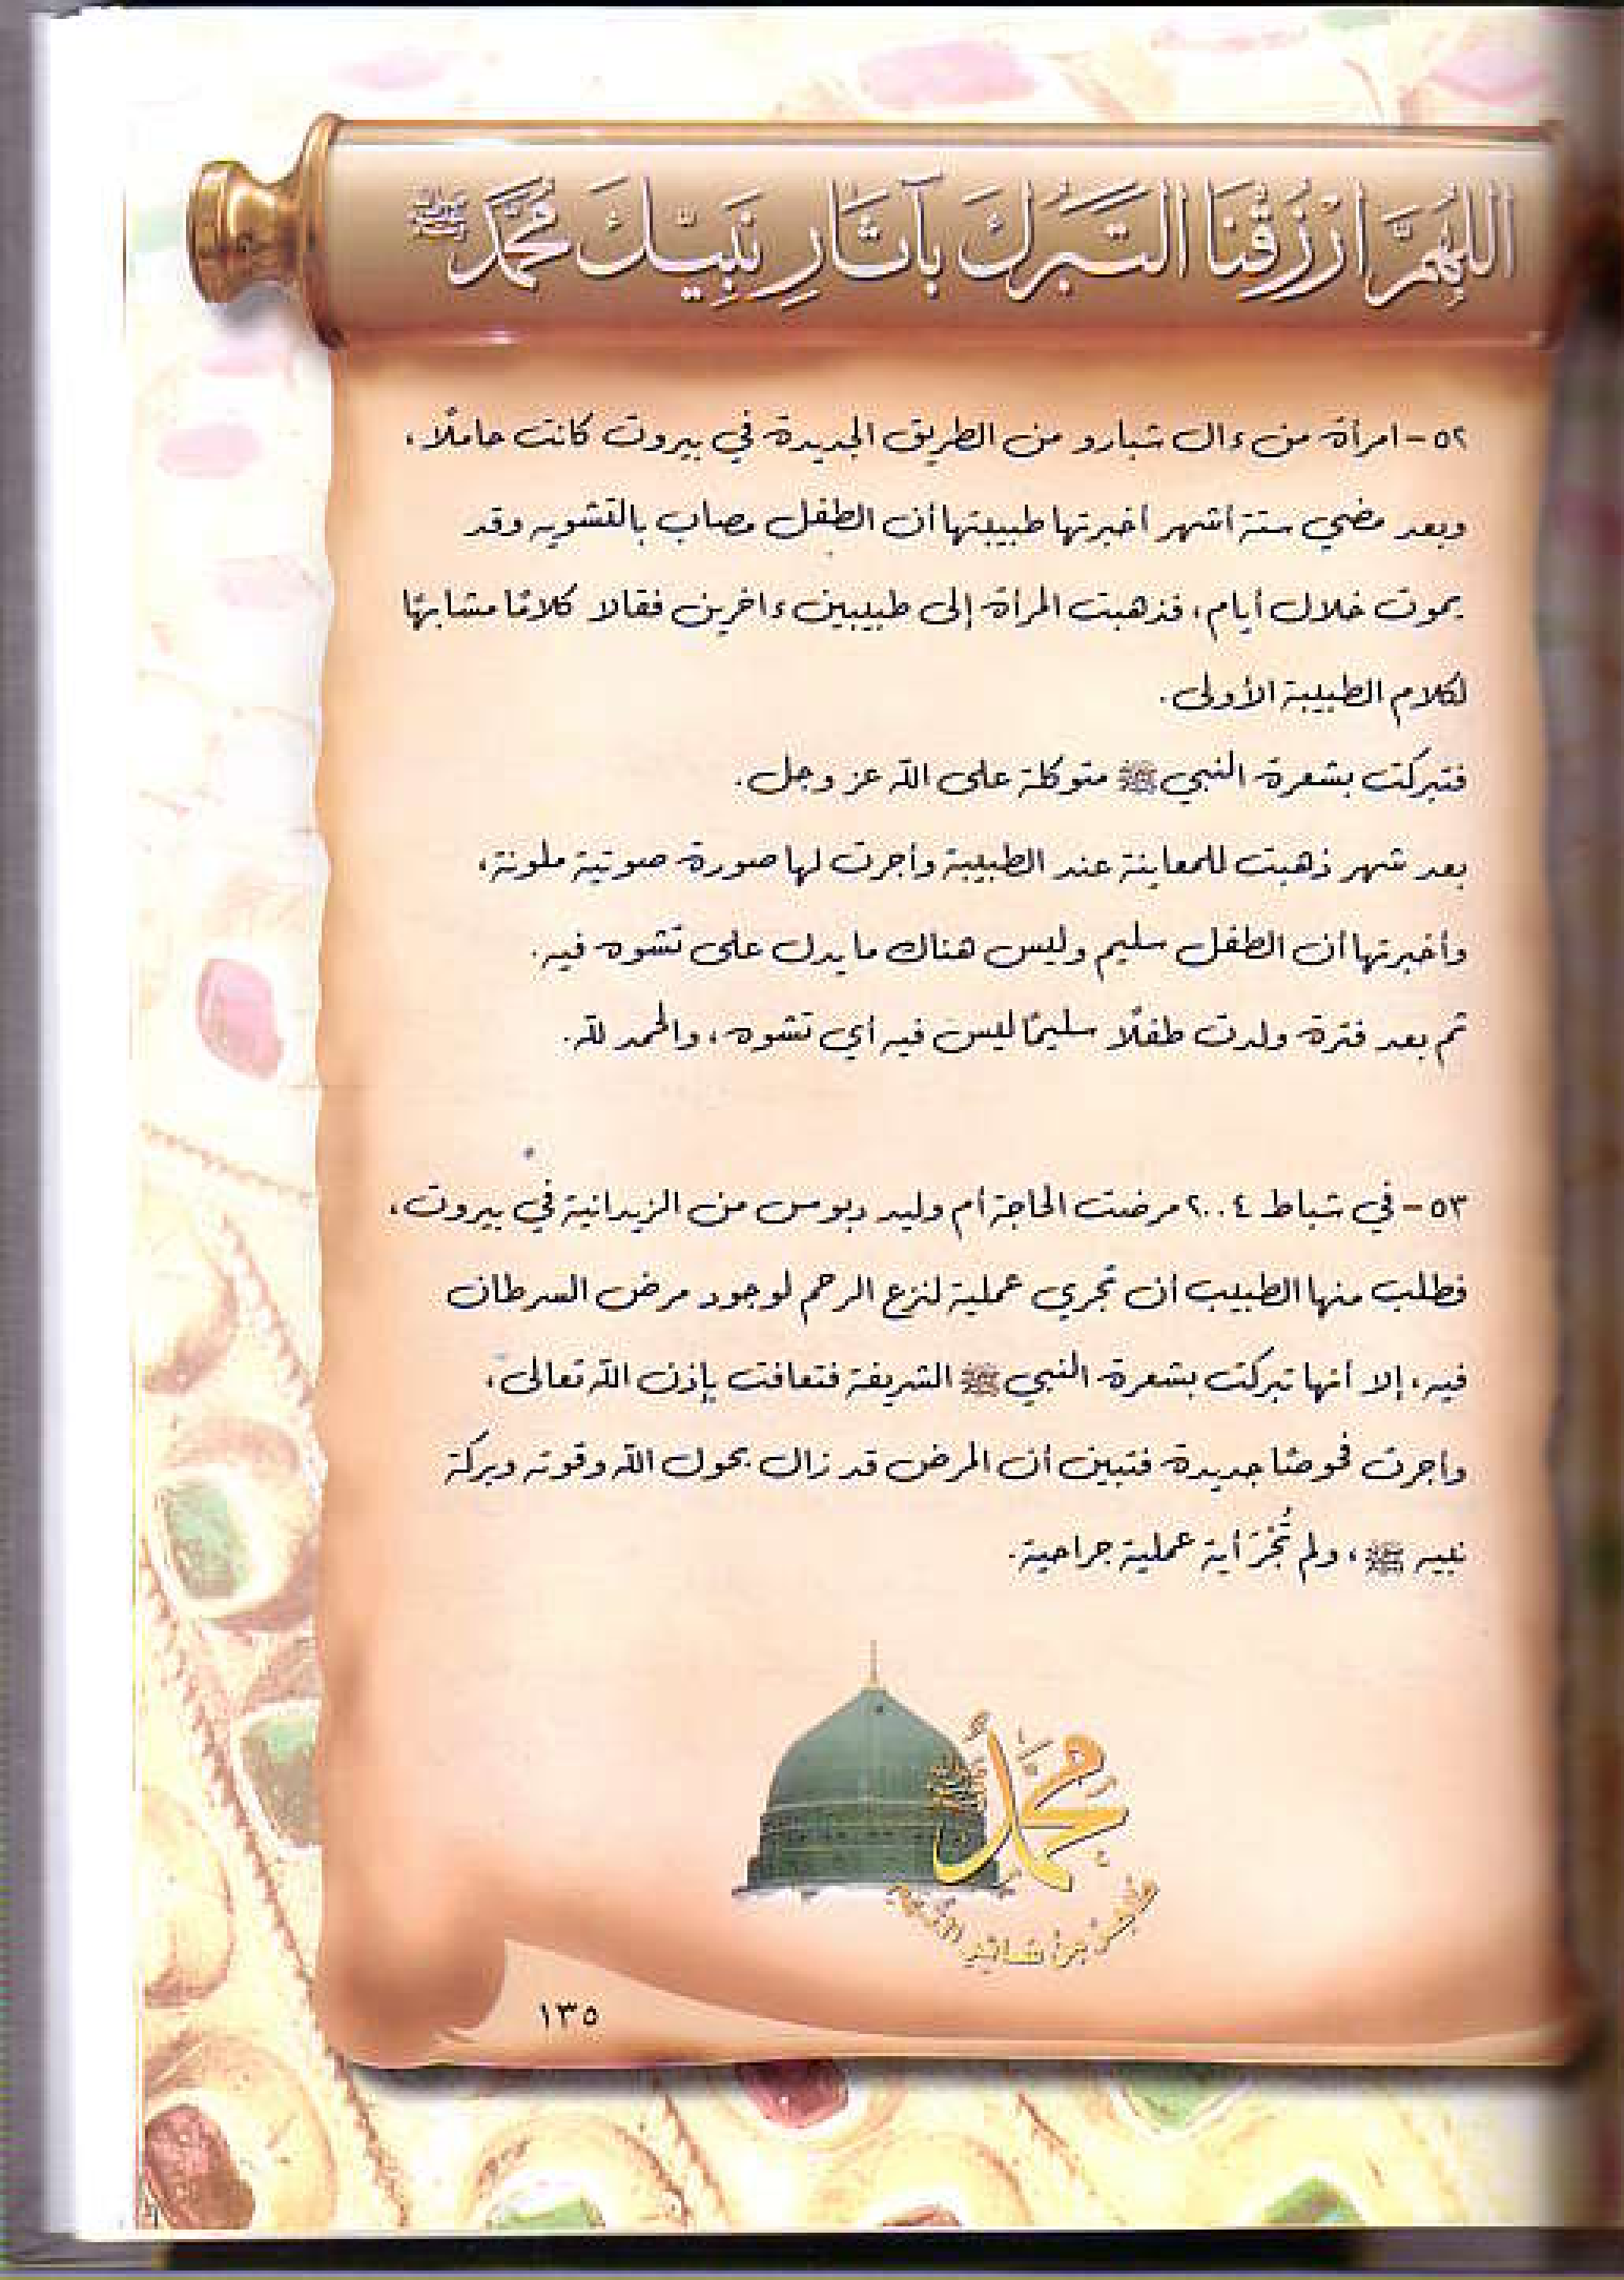 اللهُمَّ ارْزُقْنَا التَّبَرُّكَ بِآثَارِ نَبِيِّكَ مُحَمَّدٍ ﷺ
٥٢- امرأة من ءال شبارو من الطريق الجديدة في بيروت كانت حاملًا،
وبعد مضي ستة أشهر أخبرتها طبيبتها أن الطفل مصاب بالتشويه وقد
يموت خلال أيام، فذهبت المرأة إلى طبيبين ءاخرين فقالا كلامًا مشابهًا
لكلام الطبيبة الأولى.
فتبركت بشعرة النبي ﷺ متوكلة على الله عز وجل.
بعد شهر ذهبت للمعاينة عند الطبيبة وأجرت لها صورة صوتية ملونة،
وأخبرتها أن الطفل سليم وليس هناك ما يدل على تشوه فيه.
ثم بعد فترة ولدت طفلًا سليمًا ليس فيه أي تشوه، والحمد لله.
٥٣- في شباط ٢٠٠٤ مرضت الحاجة أم وليد دبوس من الزيدانية في بيروت،
فطلب منها الطبيب أن تجري عملية لنزع الرحم لوجود مرض السرطان
فيه، إلا أنها تبركت بشعرة النبي ﷺ الشريفة فتعافت بإذن الله تعالى،
واجرت فحوصًا جديدة فتبين أن المرض قد زال بحول الله وقوته وبركة
نبيه ﷺ، ولم تُجْرَ أية عملية جراحية.
محمد
١٣٥